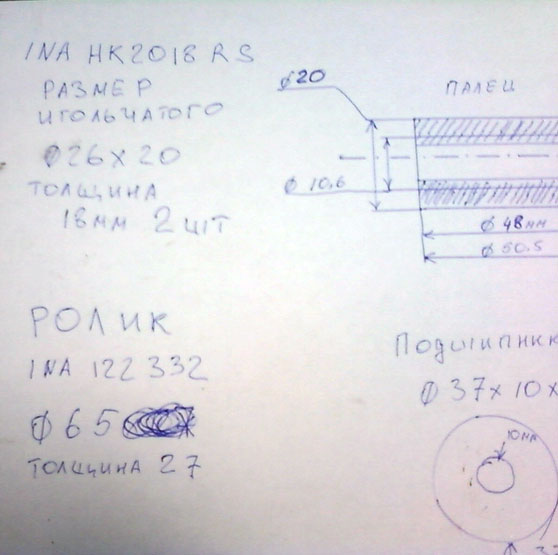 INA HK2018 RS
РАЗМЕР
ИГОЛЬЧАТОГО
Ø26 X 20
ТОЛЩИНА
18мм 2 шт
Ø20
ПАЛЕЦ
Ø 10.6
Ø 48мм
Ø 50.5
РОЛИК
INA 122 332
Ø 65
ТОЛЩИНА 27
Подшипник
Ø 37 X 10 X
10мм